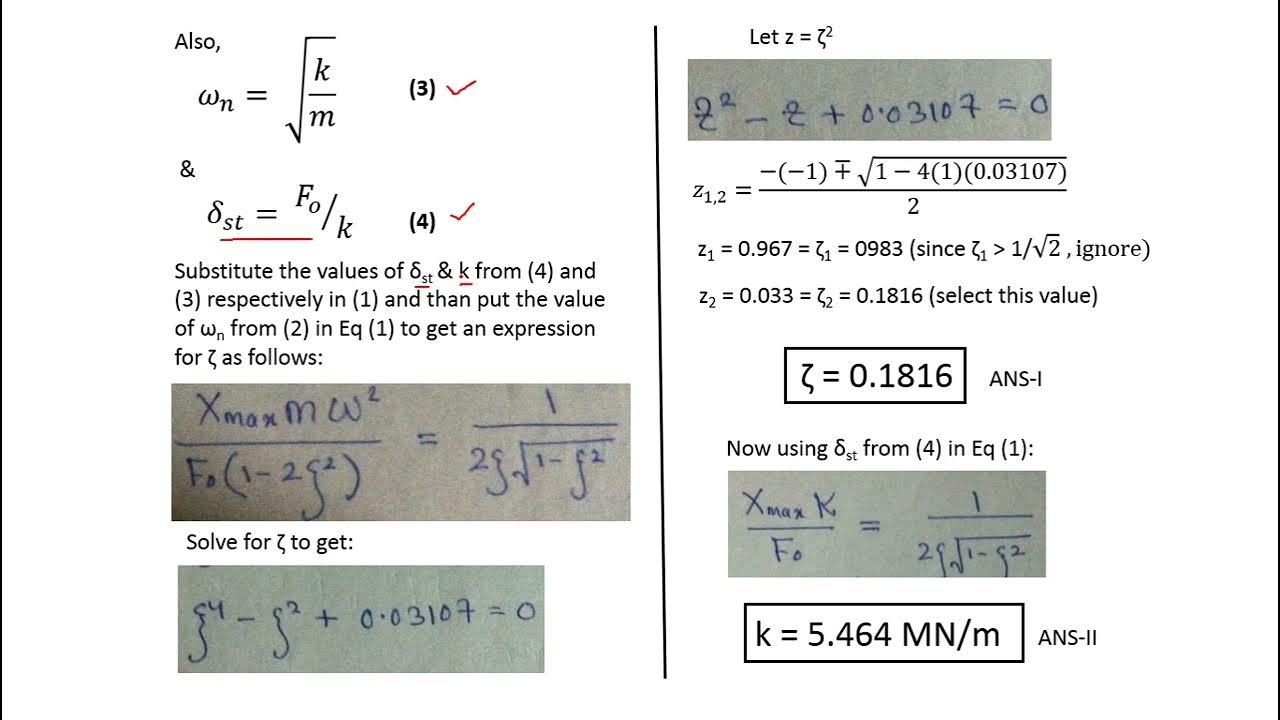 Also,
ωₙ = √(k/m) (3) ✓
&
δₛₜ = Fₒ/k (4) ✓
Substitute the values of δₛₜ & k from (4) and
(3) respectively in (1) and than put the value
of ωₙ from (2) in Eq (1) to get an expression
for ζ as follows:
Xmax m ω² / F₀(1-2ζ²) = 1 / 2ζ√(1-ζ²)
Solve for ζ to get:
ζ⁴ - ζ² + 0.03107 = 0
Let z = ζ²
z² - z + 0.03107 = 0
z₁,₂ = (-(-1) ∓ √(1 - 4(1)(0.03107))) / 2
z₁ = 0.967 = ζ₁ = 0983 (since ζ₁ > 1/√2 , ignore)
z₂ = 0.033 = ζ₂ = 0.1816 (select this value)
ζ = 0.1816 ANS-I
Now using δₛₜ from (4) in Eq (1):
Xmax K / F₀ = 1 / 2ζ√(1-ζ²)
k = 5.464 MN/m ANS-II